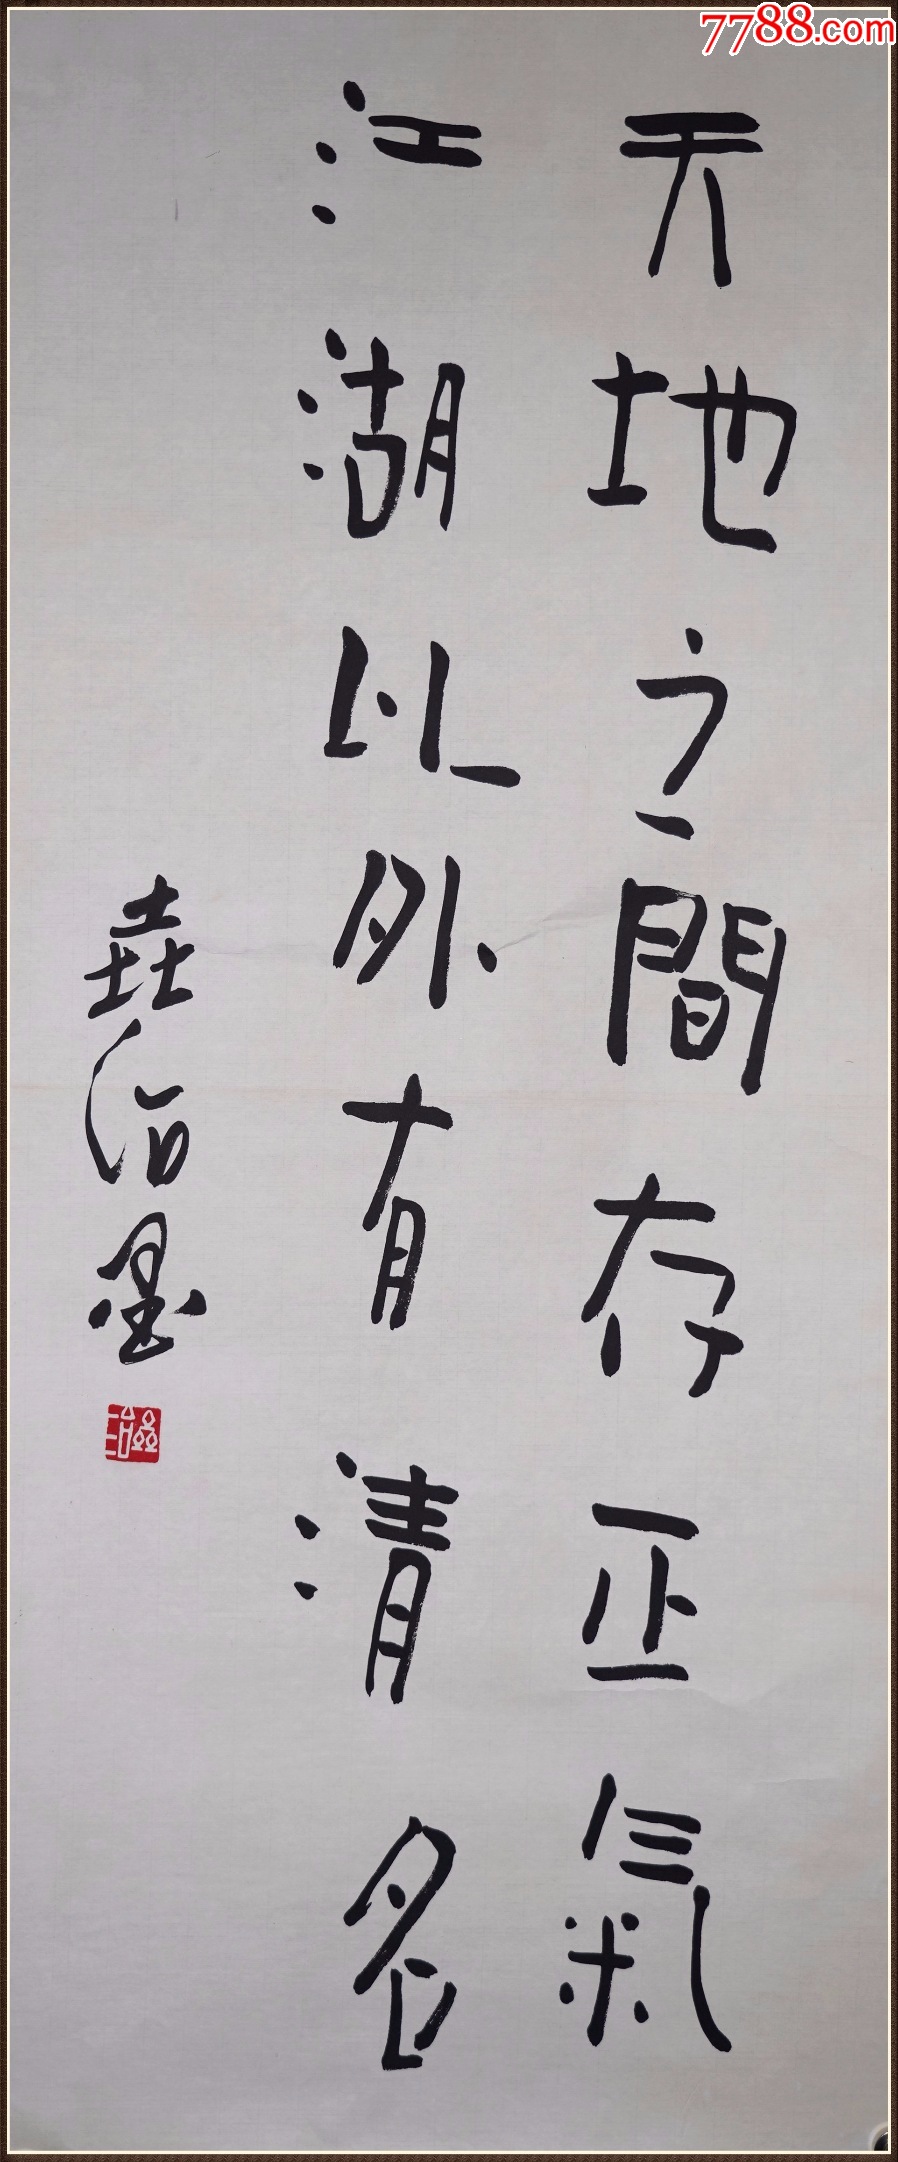 7788.com
天地之間存正氣
江湖以外有清名
垚治墨